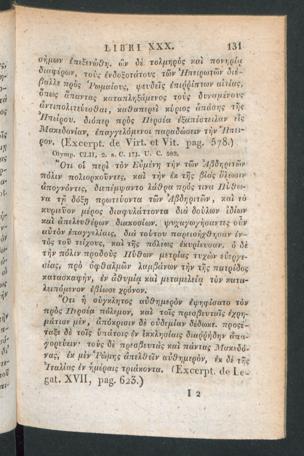 LIBRI XXX. 131
σήμων ἐπεξενώθη. ὢν δὲ τολμηρὸς καὶ πονηρίᾳ
διαφέρων, τοὺς ἐνδοξοτάτους τῶν Ἠπειρωτῶν διέ-
βαλλε πρὸς Ῥωμαίους, ψευδεῖς ἐπιῤῥίπτων αἰτίας,
ὅπως ἅπαντας καταπληξάμενος τοὺς δυναμένους
ἀντιπολιτεύεσθαι, καθαπερεὶ κύριος ἁπάσης τῆς
Ἠπείρου. διόπερ πρὸς Περσέα ἐξαπέστειλαν εἰς
Μακεδονίαν, ἐπαγγελόμενοι παραδώσειν τὴν Ἤπει-
ρον. (Excerpt. de Virt. et Vit. pag. 578.)
Olymp. CLII, 2. a. C. 171. U. C. 583.
Ὅτι οἱ περὶ τὸν Εὐμένη τὴν τῶν Ἀβδηριτῶν
πόλιν πολιορκοῦντες, καὶ τὴν ἐκ τῆς βίας ἅλωσιν
ἀπογνόντες, διεπέμψαντο λάθρα πρός τινα Πύθω-
να τῇ δόξῃ πρωτεύοντα τῶν Ἀβδηριτῶν, καὶ τὸ
κυριεῦον μέρος διαφυλάττοντα διὰ δούλων ἰδίων
καὶ ἀπελευθέρων διακοσίων. ψυχαγωγήσαντες οὖν
αὐτὸν ἐπαγγελίαις, διὰ τούτου παρεισήχθησαν ἐν-
τὸς τοῦ τείχους, καὶ τῆς πόλεως ἐκυρίευσαν. ὁ δὲ
τὴν πόλιν προδοὺς Πύθων μετρίας τυχὼν εὐεργε-
σίας, πρὸ ὀφθαλμῶν λαμβάνων τὴν τῆς πατρίδος
κατασκαφὴν, ἐν ἀθυμίᾳ καὶ μεταμελείᾳ τὸν κατα-
λειπόμενον ἐβίωσε χρόνον.
Ὅτι ἡ σύγκλητος αὐθημερὸν ἐψηφίσατο τὸν
πρὸς Περσέα πόλεμον, καὶ τοῖς πρεσβευταῖς ἐχρη-
μάτισε μὲν, ἀπόκρισιν δὲ οὐδεμίαν δέδωκε. προσέ-
ταξε δὲ τοῖς ὑπάτοις ἐν ἐκκλησίαις διαῤῥήδην ἀπα-
γορεύειν· τοὺς δὲ πρεσβευτὰς καὶ πάντας Μακεδό-
νας, ἐκ μὲν Ῥώμης ἀπελθεῖν αὐθημερὸν, ἐκ δὲ τῆς
Ἰταλίας ἐν ἡμέραις τριάκοντα. (Excerpt. de Le-
gat. XVII, pag. 623.)
I 2